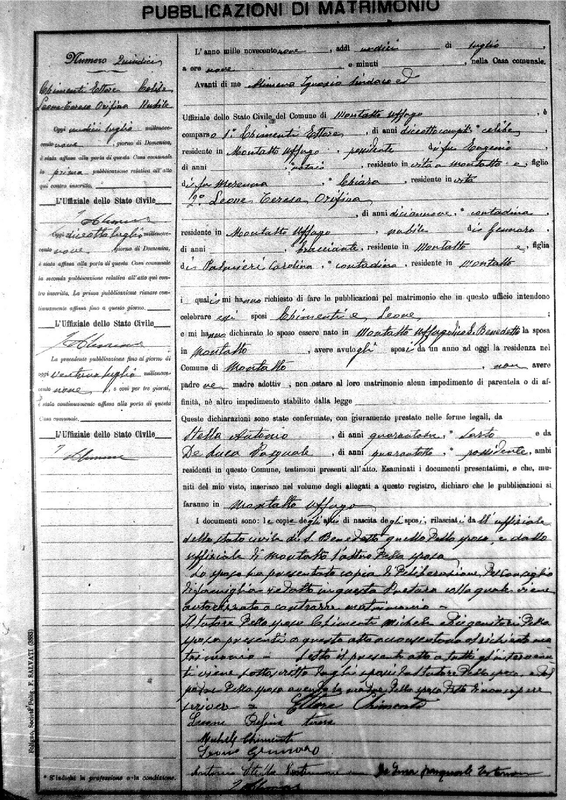 PUBBLICAZIONI DI MATRIMONIO
Numero Quindici
Chimenti Ettore Celibe
Leone Teresa Orifina Nubile
Oggi undici luglio millenove-
cento nove, giorno di Domenica,
è stata affissa alla porta di questa Casa comunale
la prima pubblicazione relativa all'atto
qui contro inscritto.
L'Uffiziale dello Stato Civile
Oggi diciotto luglio millenove-
cento nove, giorno di Domenica,
è stata affissa alla porta di questa Casa comunale
la seconda pubblicazione relativa all'atto qui con-
tro inscritto. La prima pubblicazione rimase con-
tinuamente affissa fino a questo giorno.
L'Uffiziale dello Stato Civile
La precedente pubblicazione fino al giorno di
oggi ventuno luglio millenove-
cento nove, e così per tre giorni,
è stata continuamente affissa alla porta di questa
Casa comunale.
L'Uffiziale dello Stato Civile
* S'indichi la professione o la condizione.
Foligno, Società Poligr. F. SALVATI (3883)
L'anno mille novecento nove, addì undici di luglio,
a ore nove e minuti , nella Casa comunale.
Avanti di me Ignazio Sindaco ed
Uffiziale dello Stato Civile del Comune di Montalto Uffugo, è
comparso 1° Chimenti Ettore, di anni diciotto compiti celibe
residente in Montalto Uffugo possidente di fu Eugenio
di anni , residente in vita a Montalto e figlio
di fu Chiara, residente in vita
2° Leone Teresa Orifina
, di anni diciannove contadina
residente in Montalto Uffugo nubile di Gennaro
di anni bracciante, residente in Montalto e, figlia
di Palmieri Carolina contadina, residente in Montalto
i quali mi hanno richiesto di fare le pubblicazioni pel matrimonio che in questo ufficio intendono
celebrare essi sposi Chimenti e Leone;
e mi hanno dichiarato lo sposo essere nato in S. Benedetto la sposa
in Montalto, avere avuto gli sposi da un anno ad oggi la residenza nel
Comune di Montalto, non avere
padre nè madre adottivi, non ostare al loro matrimonio alcun impedimento di parentela o di af-
finità, nè altro impedimento stabilito dalla legge
Queste dichiarazioni sono state confermate, con giuramento prestato nelle forme legali, da
Stella Antonio, di anni quarantatre sarto e da
De Luca Pasquale, di anni possidente, ambi
residenti in questo Comune, testimoni presenti all'atto. Esaminati i documenti presentatimi, e che, mu-
niti del mio visto, inserisco nel volume degli allegati a questo registro, dichiaro che le pubblicazioni si
faranno in Montalto Uffugo
I documenti sono: le copie degli atti di nascita degli sposi, rilasciati da ll'uffiziale
dello stato civile di S. Benedetto quello dello sposo, e dallo
uffiziale di Montalto l'altro della sposa
Lo sposo ha presentato copia di deliberazione del Consiglio
di famiglia redatto in questa Pretura colla quale viene
autorizzato a contrarre matrimonio
Il tutore dello sposo Chimenti Michele e i genitori della
sposa presenti a questo atto acconsentono al richiesto ma-
trimonio Letto il presente atto a tutti gli intervenuti
viene sottoscritto dagli sposi dal tutore dello sposo, e dal
padre della sposa avendo la madre della sposa detto di non sapere
scrivere
Ettore Chimenti
Leone Orifina Teresa
Michele Chimenti
Leone Gennaro
Antonio Stella testimone
De Luca Pasquale testimone